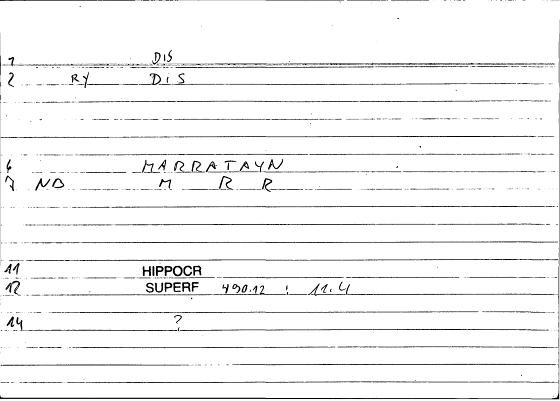 1 DIS
2 RY DIS
6 MARRATAYN
7 ND M R R
11 HIPPOCR
12 SUPERF 490.12 ; 11.4
14 ?